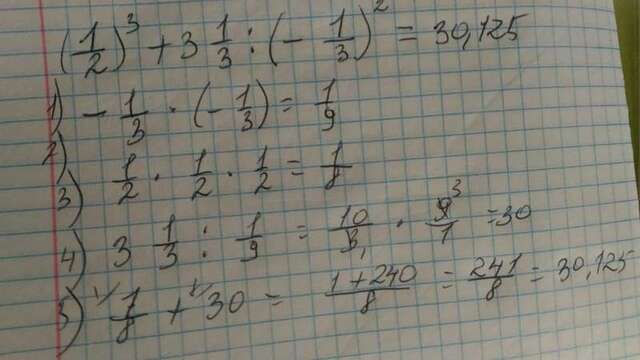 (1/2)³ + 3 1/3 : (- 1/3)² = 30,125
1) - 1/3 · (- 1/3) = 1/9
2)
3) 1/2 · 1/2 · 1/2 = 1/8
4) 3 1/3 : 1/9 = 10/3 1 · 9 3/1 = 30
5) 1/8 + 30 = 1+240/8 = 241/8 = 30,125